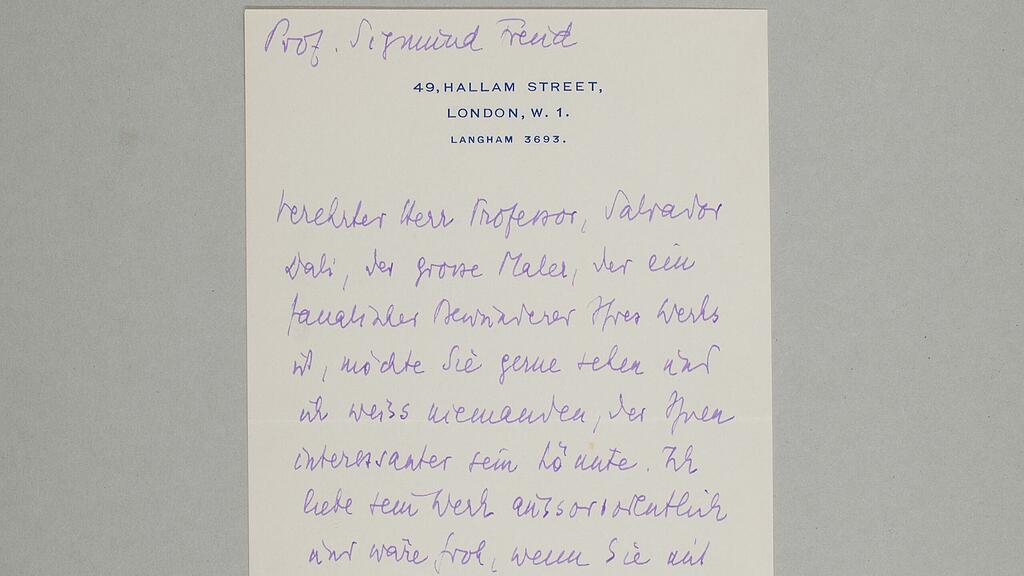 Prof. Sigmund Freud
49, HALLAM STREET,
LONDON, W. 1.
LANGHAM 3693.
Verehrter Herr Professor, Salvador
Dali, der grosse Maler, der ein
fanatischer Bewunderer Ihres Werks
ist, möchte Sie gerne sehen und
ich weiss niemanden, der Ihnen
interessanter sein könnte. Ich
liebe sein Werk ausserordentlich
und wäre froh, wenn Sie mit